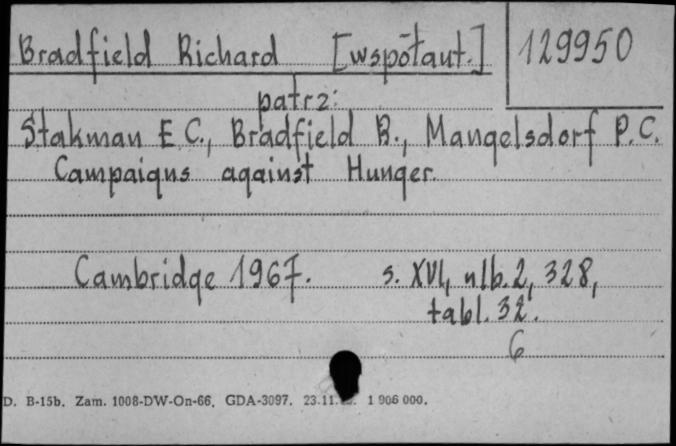 Bradfield Richard [współaut.] 129950
patrz:
Stakman E.C., Bradfield R., Mangelsdorf P.C.
Campaigns against Hunger.
Cambridge 1967. s. XVI, nlb. 2, 328,
tabl. 32.
6
D. B-15b. Zam. 1008-DW-On-66. GDA-3097. 23.11. 1 906 000.